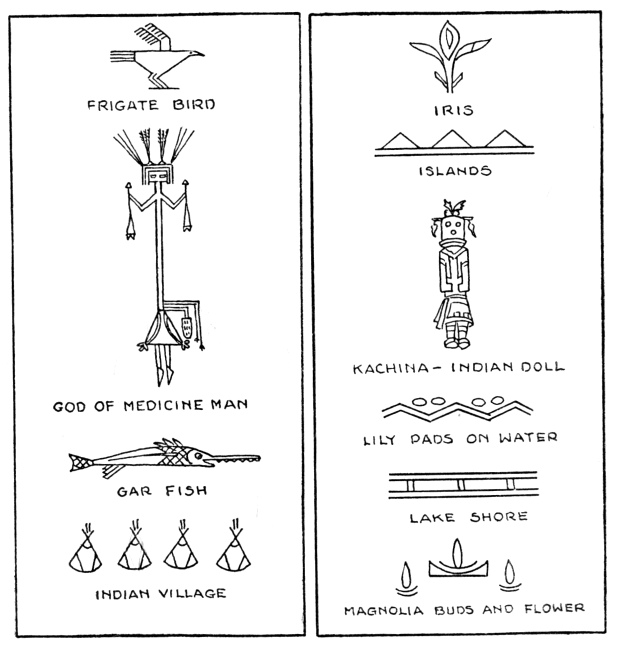 FRIGATE BIRD
GOD OF MEDICINE MAN
GAR FISH
INDIAN VILLAGE
IRIS
ISLANDS
KACHINA - INDIAN DOLL
LILY PADS ON WATER
LAKE SHORE
MAGNOLIA BUDS AND FLOWER